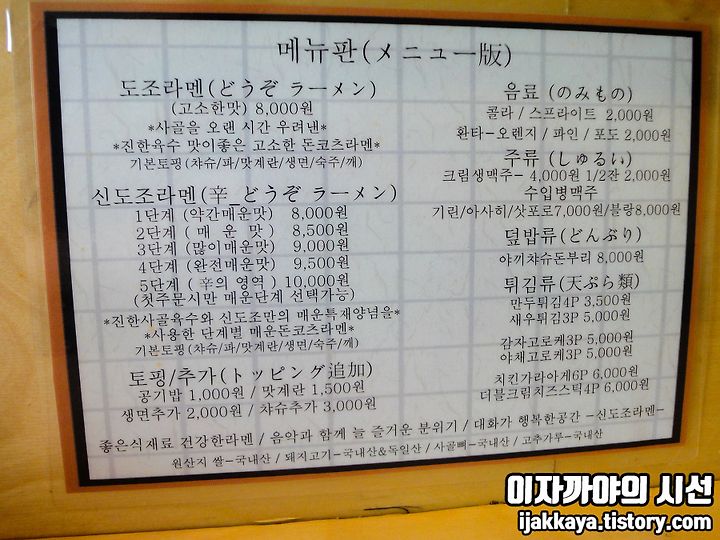 메뉴판(メニュー版)
도조라멘(どうぞ ラーメン)
(고소한맛) 8,000원
*사골을 오랜 시간 우려낸*
*진한육수 맛이좋은 고소한 돈코츠라멘*
기본토핑(챠슈/파/맛계란/생면/숙주/깨)
신도조라멘(辛_どうぞ ラーメン)
1단계 (약간매운맛) 8,000원
2단계 ( 매 운 맛 ) 8,500원
3단계 (많이매운맛) 9,000원
4단계 (완전매운맛) 9,500원
5단계 ( 辛의 영역 ) 10,000원
(첫주문시만 매운단계 선택가능)
*진한사골육수와 신도조만의 매운특재양념을*
*사용한 단계별 매운돈코츠라멘*
기본토핑(챠슈/파/맛계란/생면/숙주/깨)
토핑/추가(トッピング追加)
공기밥 1,000원 / 맛계란 1,500원
생면추가 2,000원 / 챠슈추가 3,000원
음료 (のみもの)
콜라 / 스프라이트 2,000원
환타-오렌지 / 파인 / 포도 2,000원
주류 (しゅるい)
크림생맥주- 4,000원 1/2잔 2,000원
수입병맥주
기린/아사히/삿포로7,000원/블랑8,000원
덮밥류(どんぶり)
야끼챠슈돈부리 8,000원
튀김류(天ぷら類)
만두튀김4P 3,500원
새우튀김3P 5,000원
감자고로케3P 5,000원
야채고로케3P 5,000원
치킨가라아게6P 6,000원
더블크림치즈스틱4P 6,000원
좋은식재료 건강한라멘 / 음악과 함께 늘 즐거운 분위기 / 대화가 행복한공간 -신도조라멘-
원산지 쌀-국내산 / 돼지고기-국내산&독일산 / 사골뼈-국내산 / 고추가루-국내산
이자까야의 시선
ijakkaya.tistory.com